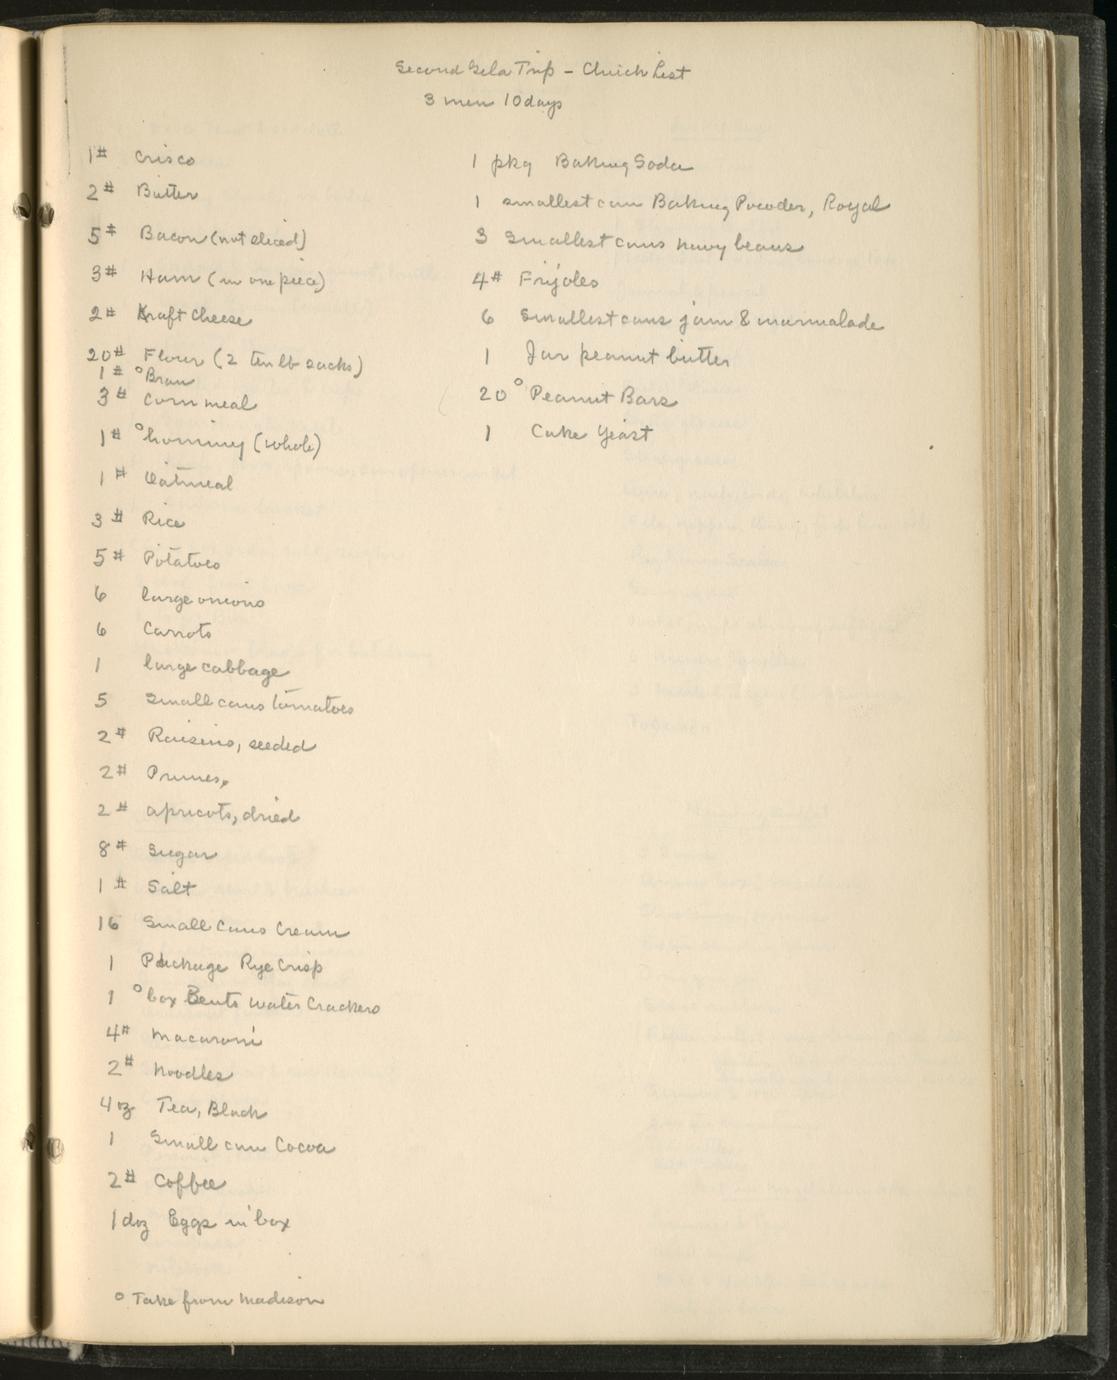 Second Gila Trip - Chuck List
3 men 10 days
1# Crisco
2# Butter
5# Bacon (not sliced)
3# Ham (in one piece)
2# Kraft Cheese
20# Flour (2 ten lb sacks)
1# °Bran
3# Corn meal
1# °hominy (whole)
1# Oatmeal
3# Rice
5# Potatoes
6 large onions
6 Carrots
1 large cabbage
5 Small cans tomatoes
2# Raisins, seeded
2# Prunes,
2# apricots, dried
8# Sugar
1# Salt
16 Small Cans Cream
1 Package Rye Crisp
1 °box Bents Water Crackers
4# Macaroni
2# Noodles
4 oz Tea, Black
1 Small can Cocoa
2# Coffee
1 doz Eggs in box
° Take from Madison
1 pkg Baking Soda
1 smallest can Baking Powder, Royal
3 Smallest cans navy beans
4# Frijoles
6 Smallest cans jam & marmalade
1 Jar peanut butter
20 °Peanut Bars
1 Cake Yeast